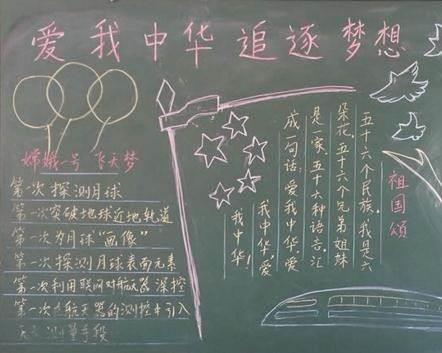 爱我中华 追逐梦想
嫦娥一号 飞天梦
第一次探测月球
第一次突破地球近地轨道
第一次为月球“画像”
第一次探测月球表面元素
第一次利用联网对航天器深控
第一次 航天器的测控中引入
天 测 手段
祖国颂
五十六个民族,我是六
朵花,五十六个兄弟姐妹
是一家,五十六种语言,汇
成一句话:爱我中华,爱
我中华,爱
我中华!